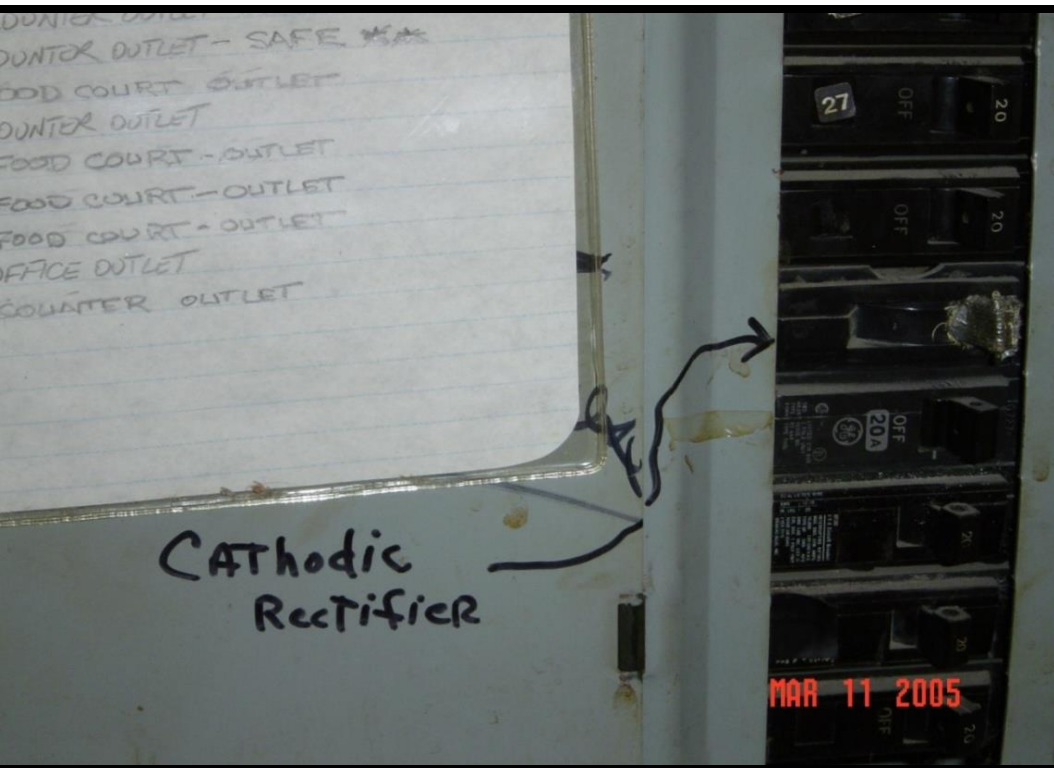 OUNTER OUTLET
OUNTER OUTLET - SAFE **
OOD COURT OUTLET
OUNTER OUTLET
FOOD COURT - OUTLET
FOOD COURT - OUTLET
FOOD COURT - OUTLET
OFFICE OUTLET
COUNTER OUTLET
CAThodic
RecTifieR
27
OFF
20
OFF
20
OFF
20A
GE
20
20
OFF
20
MAR 11 2005